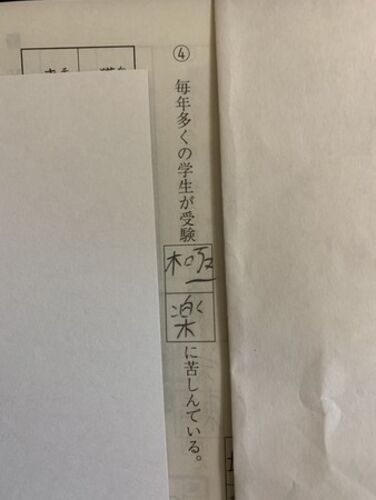 ④ 毎年多くの学生が受験極楽に苦しんでいる。